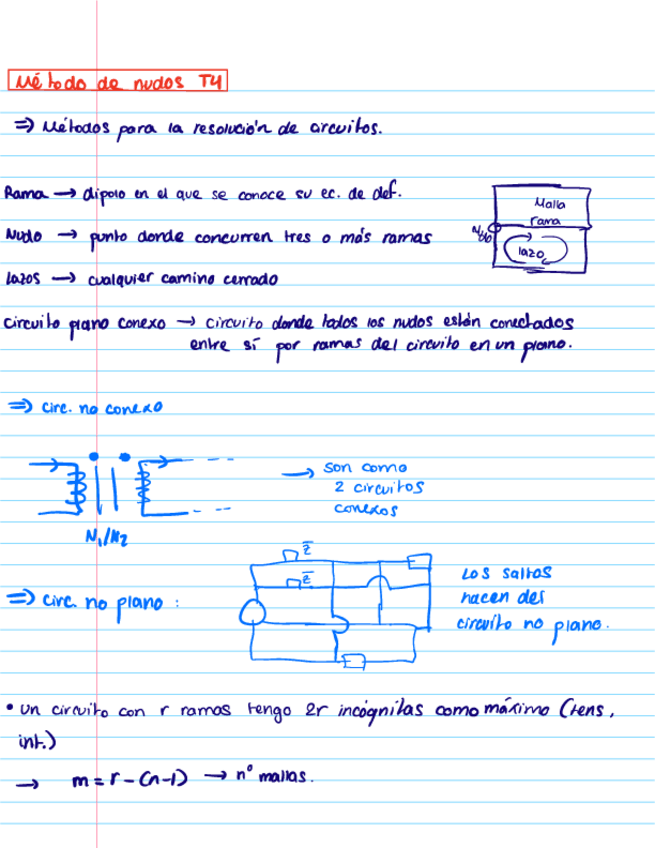 Método de nudos T4
⇒ Métodos para la resolución de circuitos.
Rama → dipolo en el que se conoce su ec. de def.
Nudo → punto donde concurren tres o más ramas
Malla
rama
Nudo
lazo
Lazos → cualquier camino cerrado
Circuito plano conexo → circuito donde todos los nudos están conectados
entre sí por ramas del circuito en un plano.
⇒ circ. no conexo
→ son como
2 circuitos
conexos
N₁/N₂
Z̄
Z̄
⇒ circ. no plano :
Los saltos
hacen del
circuito no plano.
• Un circuito con r ramas tengo 2r incógnitas como máximo (tens,
int.)
→ m = r - (n-1) → nº mallas.